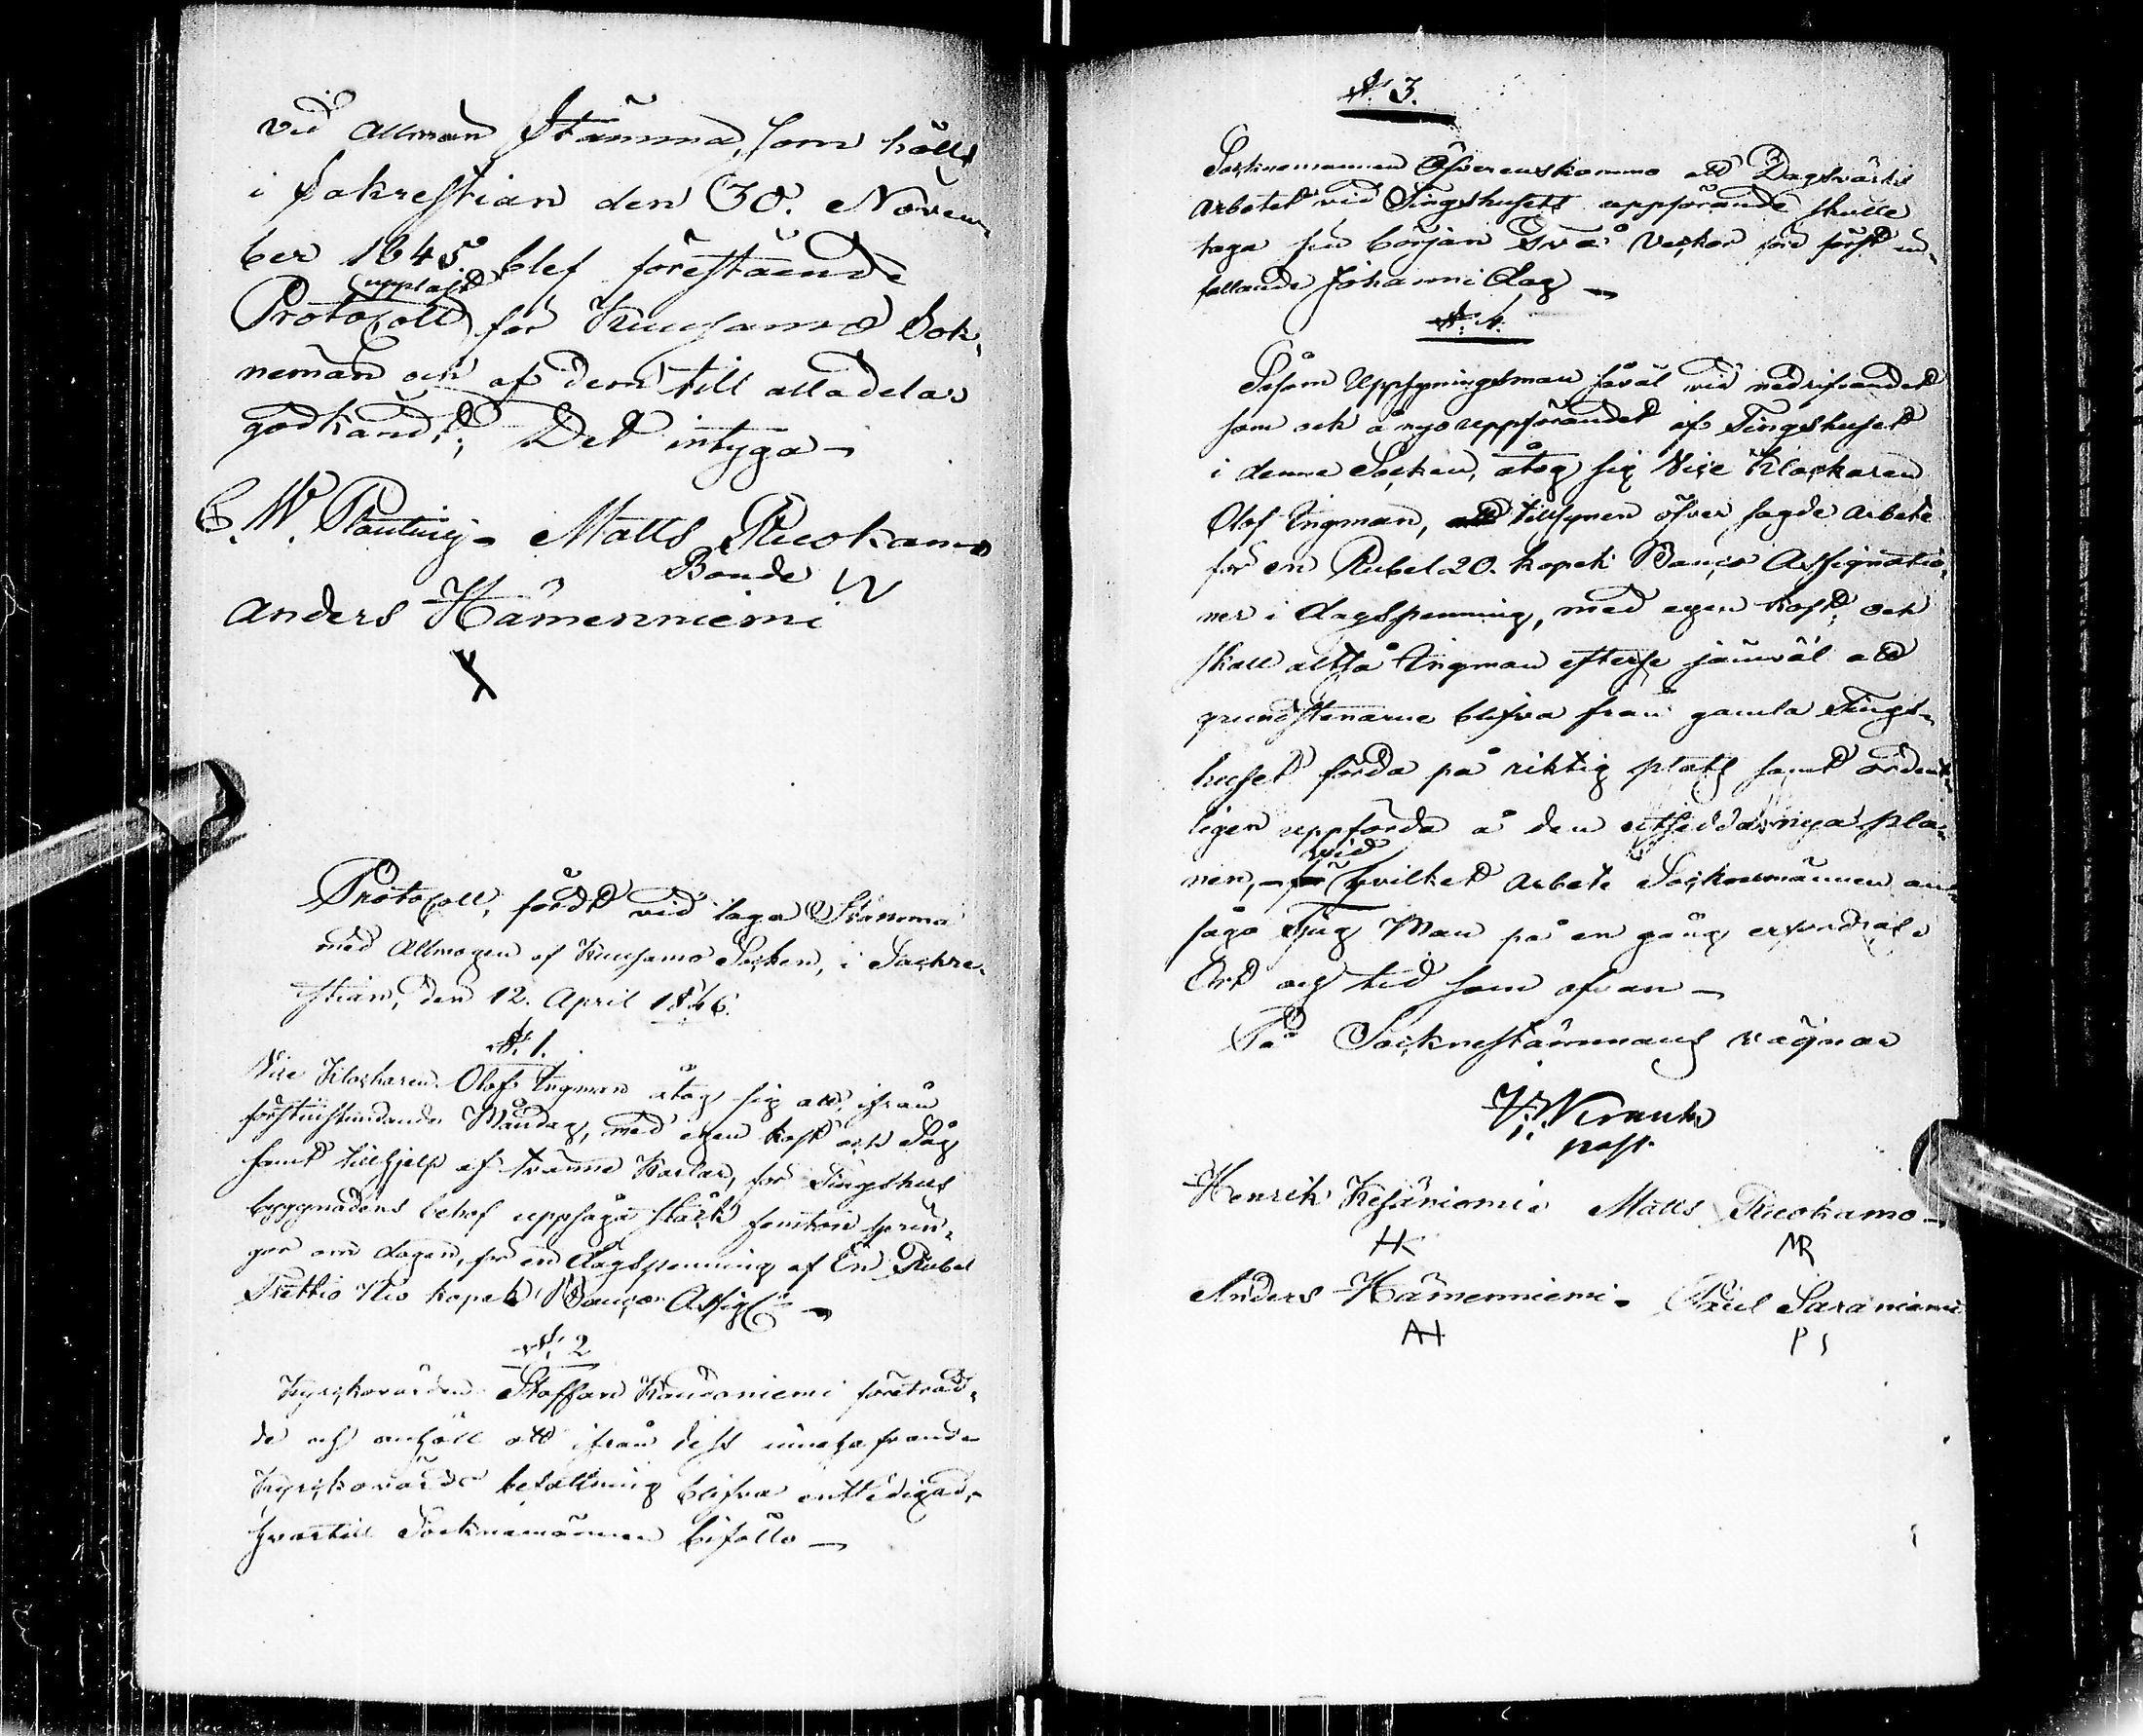 Vid allmän Stämma, som hölts
i Sakrestian den 30. Novem-
ber 1845 blef förestående
uppläst
Protocoll för Kuusamo Sok-
nemän och af dem till alla delar
godkändt; Det intyga –
C. W. Matts Ruokamo
Bonde
Anders Hämenniemi
X
Protocoll, fördt vid laga Stämma
med Allmogen af Kuusamo Socken, i Sackre-
stian, den 12. April 1846.
§. 1.
Vice Klockaren Olof Ingman åtog sig att, ifrån
förstinstundande Måndag, med egen kost och Såg
samt tillhjelp af tvänne Karlar, för Tingshus
byggnadens behof uppsåga stäck femton sprin-
gor om dagen, för en dagspenning af En Rubel
Trettio Nio kopek Banco Assig:
§. 2
Kyrckovärden Staffan företräd-
de och anhöll att ifrån dess innehafvande
Kyrckovärds befattning blifva entledigad,
hvartill Socknemännen biföllo –
§. 3.
Socknemannen Öfverenskommo att Dagsvärks
arbetet vid Tingshusets uppförande skulle
taga sin början två Veckor före först in-
fallande Johanni dag –
§. 4.
Såsom Uppsyningsman såväl vid nedrifvandet
som ock å nyo uppförandet af Tingshuset
i denna Socken, åtog sig Vice Klockaren
Olof Ingman, tillsynen öfver sagde arbete
för en Rubel 20. kopek Banco Assignatio-
ner i dagspenning, med egen kost; och
skall altså Ingman efterse jämväl att
grundstenarne blifva från gamla Tings-
huset förda på riktig plats samt ordent-
ligen uppförda å den utsedda nya pla-
vid
nen, – hvilket arbete Socknemännen an-
sågo Tjug Man på en gång erfordras.
Ort och tid som ofvan –
På Socknestämmans vägnar
Henrik Kesäniemi Matts Ruokamo –
HK MR
Anders Hämenniemi. Paul Säräniemi
AH PS